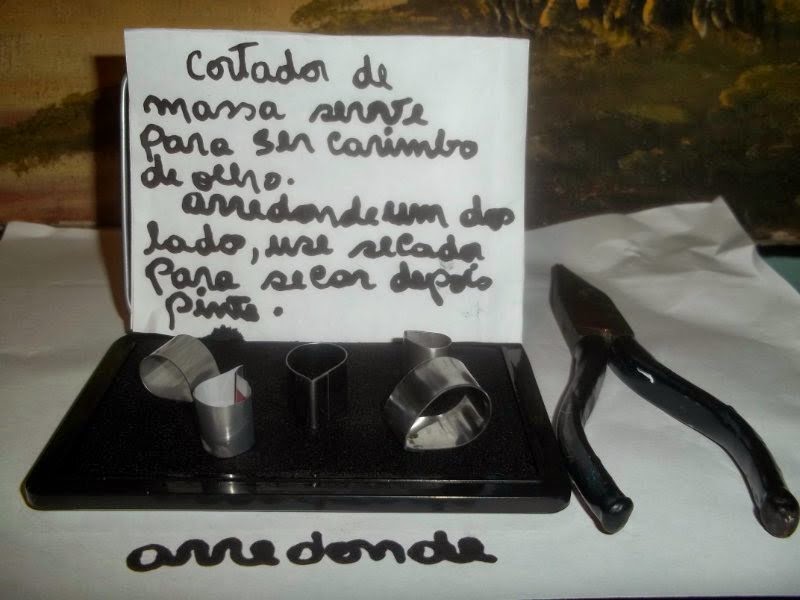 Cortador de
massa serve
para ser carimbo
de olho.
arredonde um dos
lado, use secador
para secar depois
pinte.
arredonde